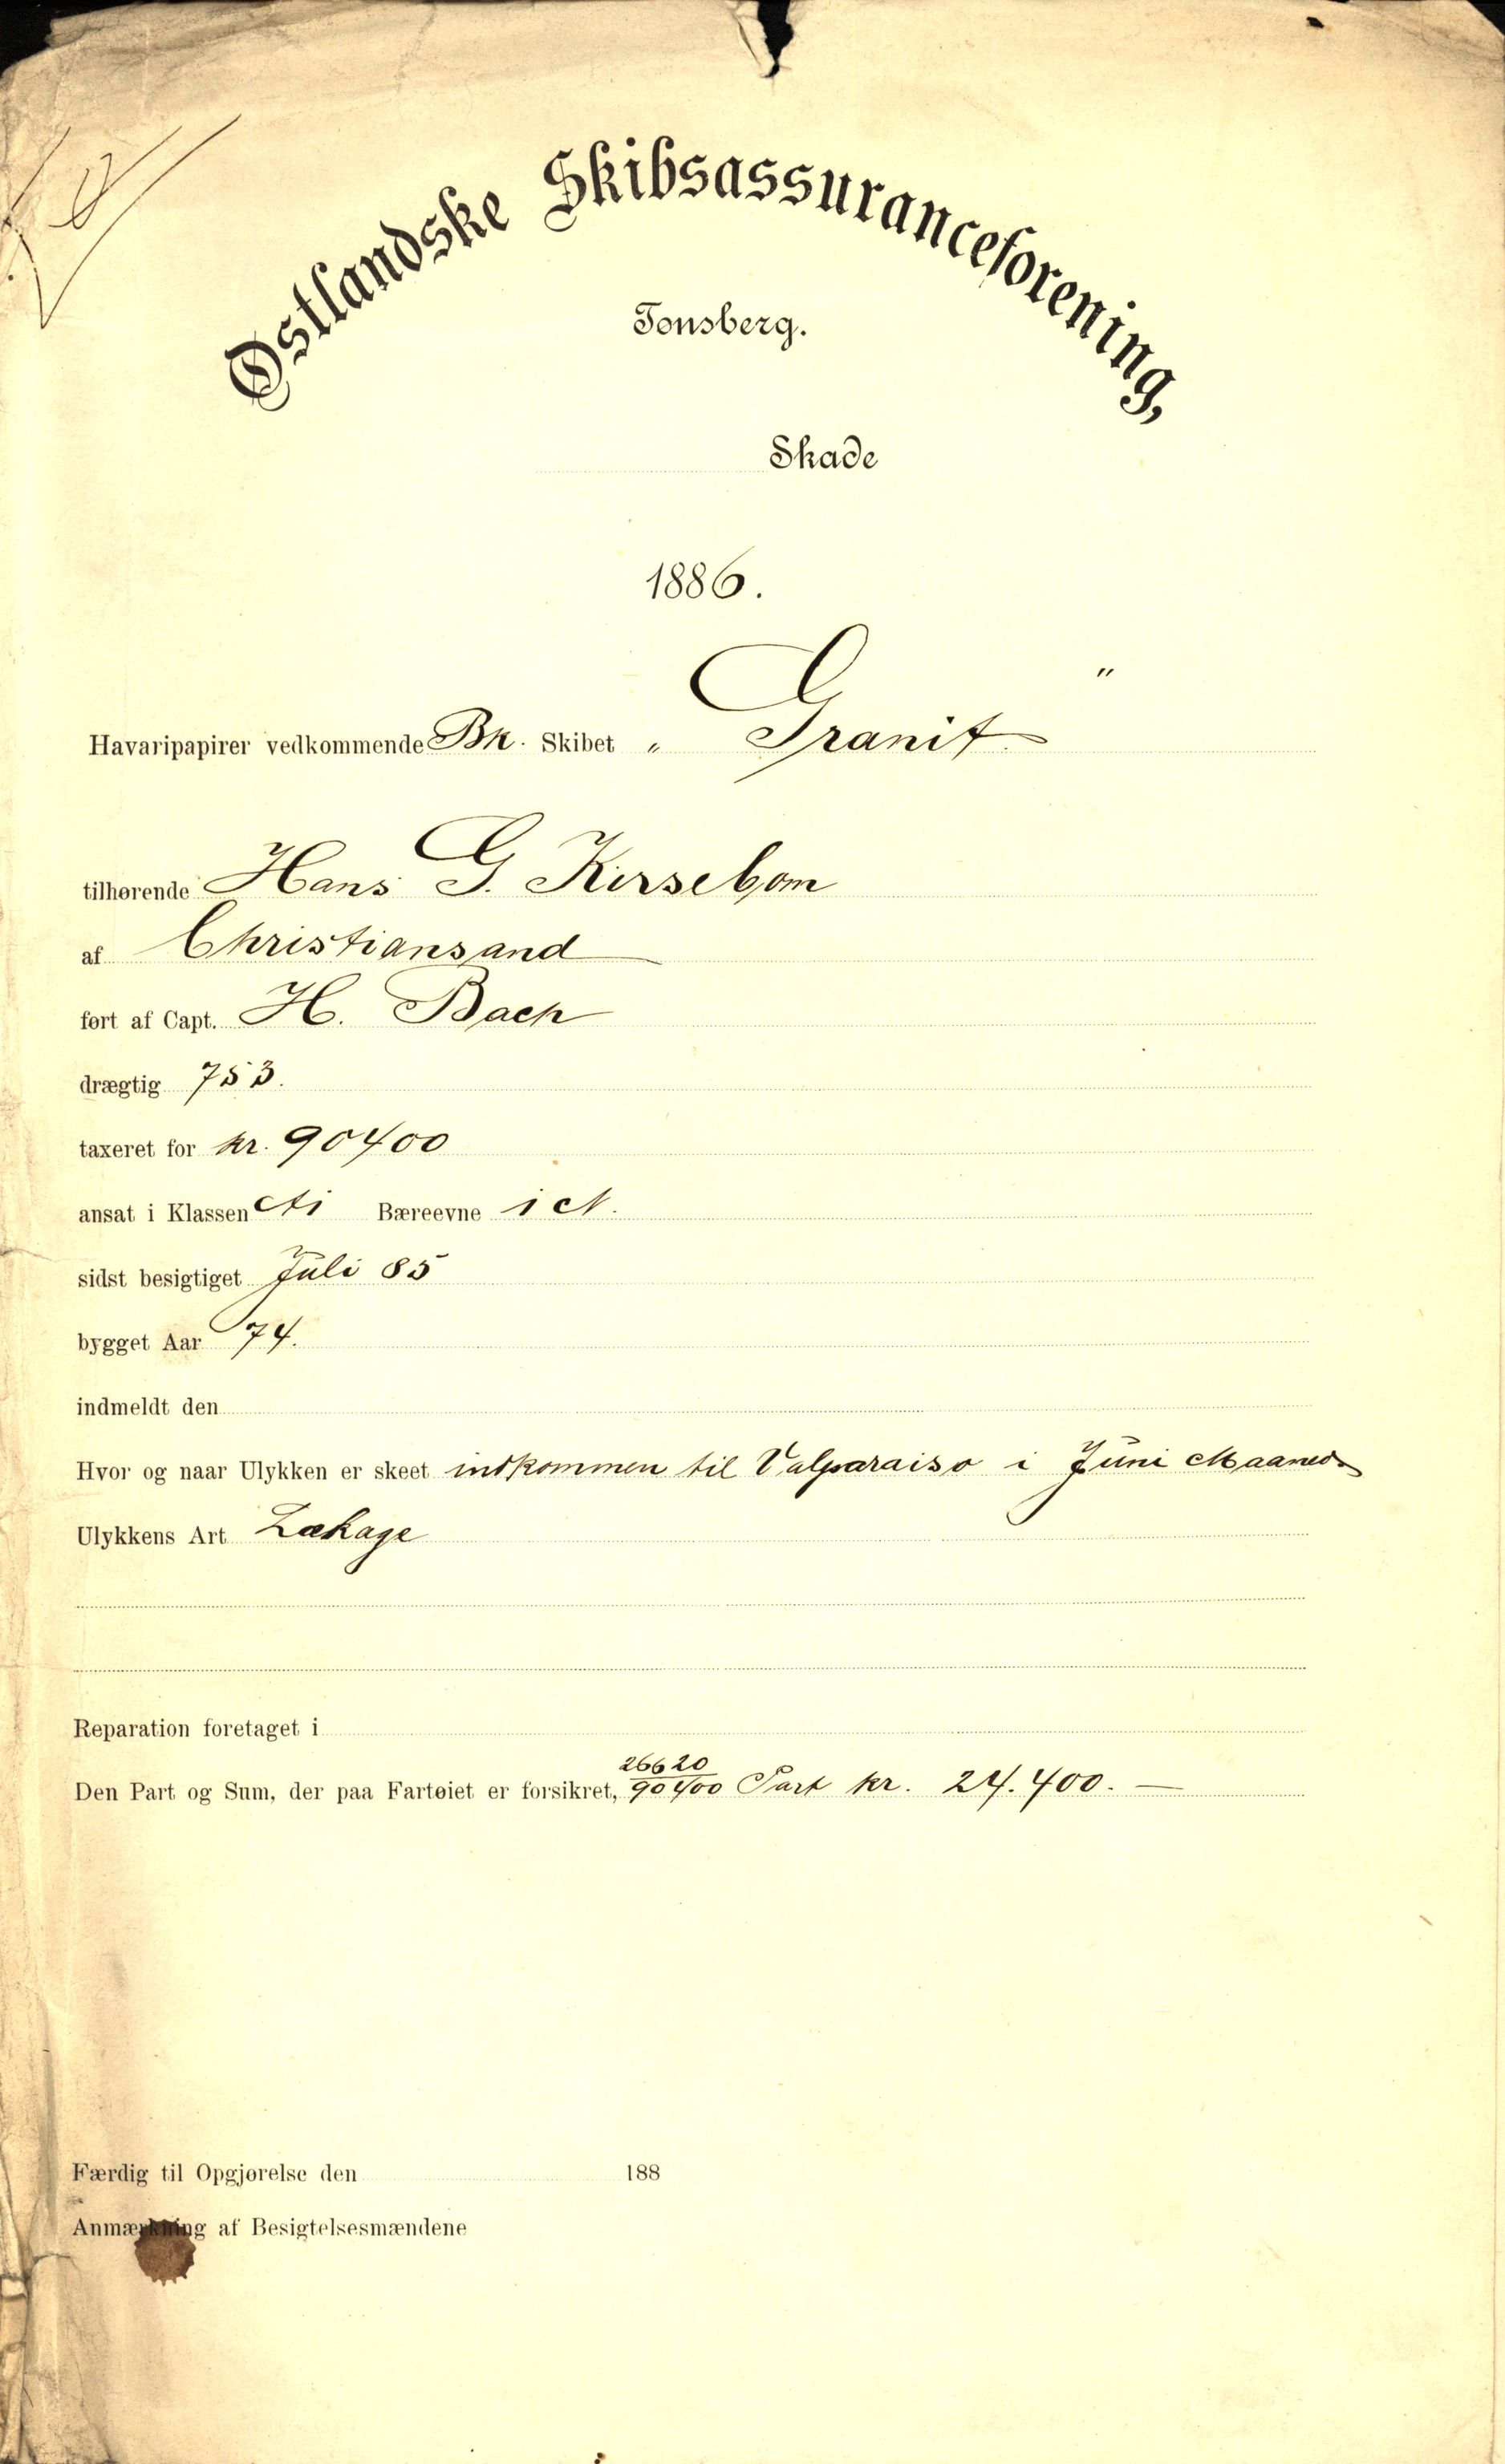 Østlandske Skibsassuranceforening,
Tønsberg.
Skade
1886.
Havaripapirer vedkommende Bk. Skibet „ Granit "
tilhørende Hans G. Kirsebom
af Christiansand
ført af Capt. H. Bach
drægtig 753.
taxeret for kr. 90400
ansat i Klassen A1 Bæreevne 1 N.
sidst besigtiget Juli 85
bygget Aar 74.
indmeldt den
Hvor og naar Ulykken er skeet indkommen til Valparaiso i Juni Maaned
Ulykkens Art Lækage
Reparation foretaget i
Den Part og Sum, der paa Fartøiet er forsikret, 26620/90400 Part kr. 24.400.—
Færdig til Opgjørelse den 188
Anmærkning af Besigtelsesmændene